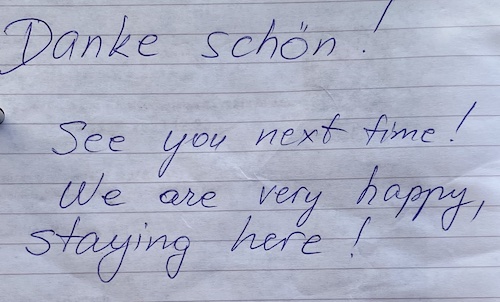 Danke schön!
See you next time!
We are very happy,
staying here!